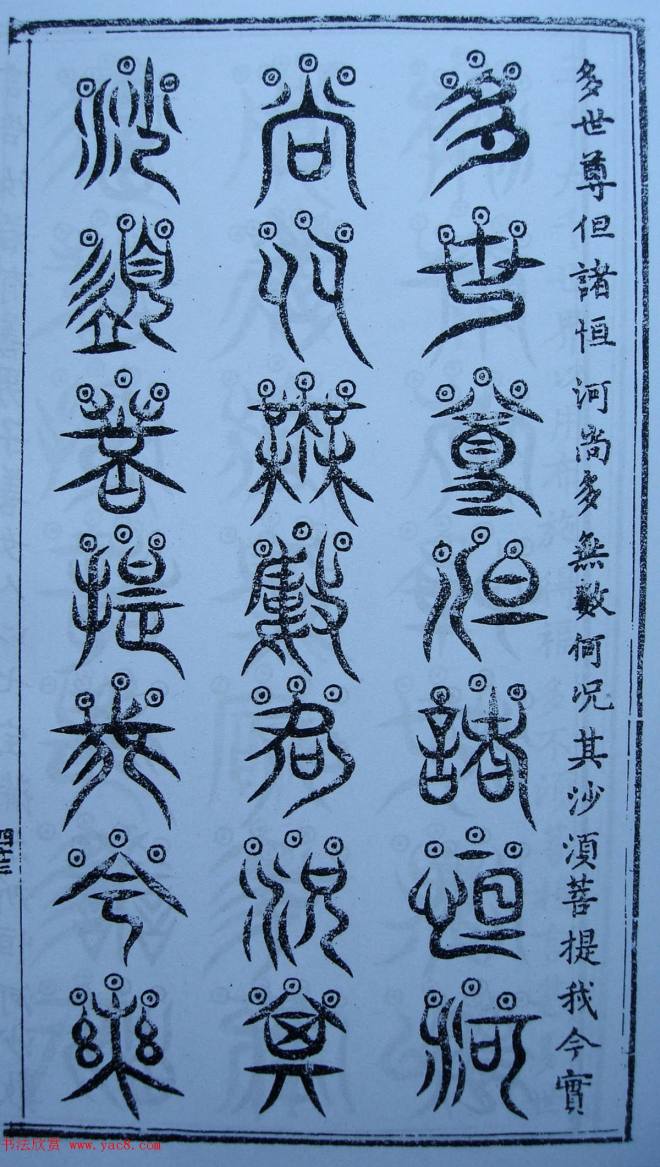 多世尊但諸恒河尚多無數何況其沙須菩提我今實
多世尊但諸恒河
尚多無數何況其
沙須菩提我今實
四十三
书法欣赏 www.yac8.com